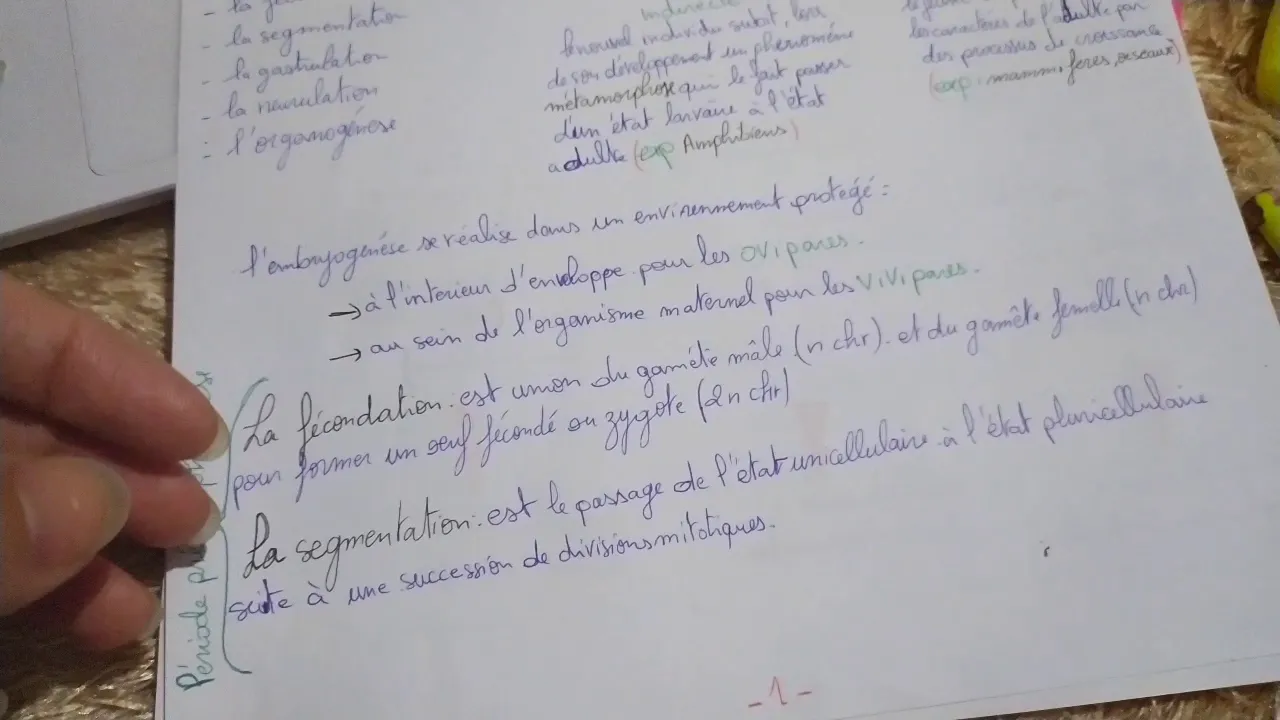 - la
- la segmentation
- la gastrulation
- la neurulation
- l'organogénèse
indirecte
le nouvel individu subit, lors
de son développement un phénomène
métamorphose qui le fait passer
d'un état larvaire à l'état
adulte (exp Amphibiens)
les caractères de l'adulte par
des processus de croissance
(exp : mammifères, oiseaux)
l'embryogénèse se réalise dans un environnement protégé :
→ à l'interieur d'enveloppe pour les ovipares.
→ au sein de l'organisme maternel pour les Vivipares.
La fécondation : est union du gaméte mâle (n chr). et du gaméte femelle (n chr)
pour former un oeuf fécondé ou zygote (2n chr)
La segmentation : est le passage de l'état unicellulaire à l'état pluricellulaire
suite à une succession de divisions mitotiques.
Période
- 1 -